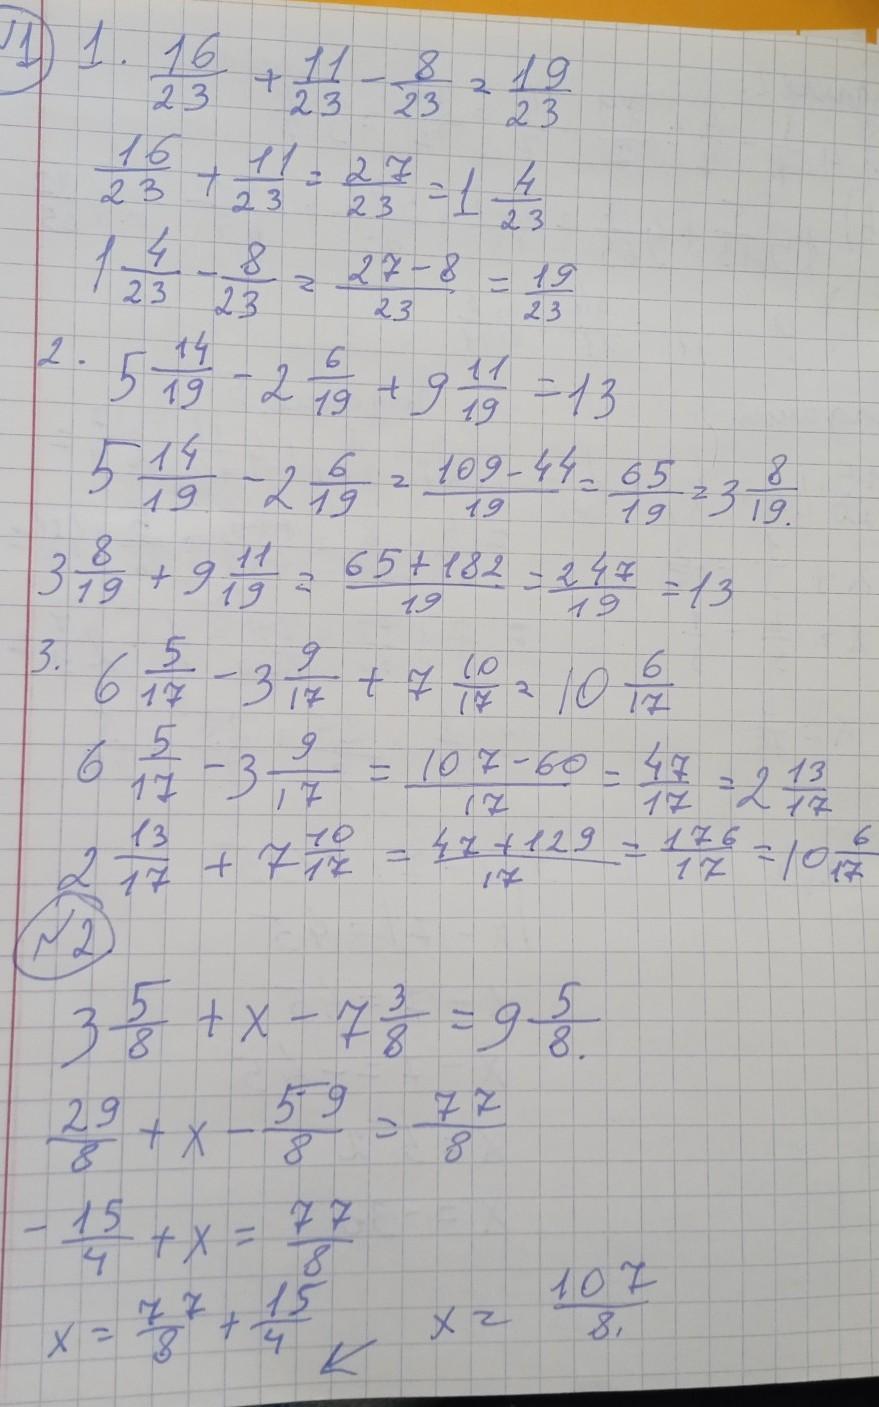 √1 1. 16/23 + 11/23 - 8/23 = 19/23
16/23 + 11/23 = 27/23 = 1 4/23
1 4/23 - 8/23 = 27-8/23 = 19/23
2. 5 14/19 - 2 6/19 + 9 11/19 = 13
5 14/19 - 2 6/19 = 109-44/19 = 65/19 = 3 8/19.
3 8/19 + 9 11/19 = 65+182/19 = 247/19 = 13
3. 6 5/17 - 3 9/17 + 7 10/17 = 10 6/17
6 5/17 - 3 9/17 = 107-60/17 = 47/17 = 2 13/17
2 13/17 + 7 10/17 = 47+129/17 = 176/17 = 10 6/17
~2
3 5/8 + x - 7 3/8 = 9 5/8.
29/8 + x - 59/8 = 77/8
- 15/4 + x = 77/8
x = 77/8 + 15/4 ↙ x = 107/8.